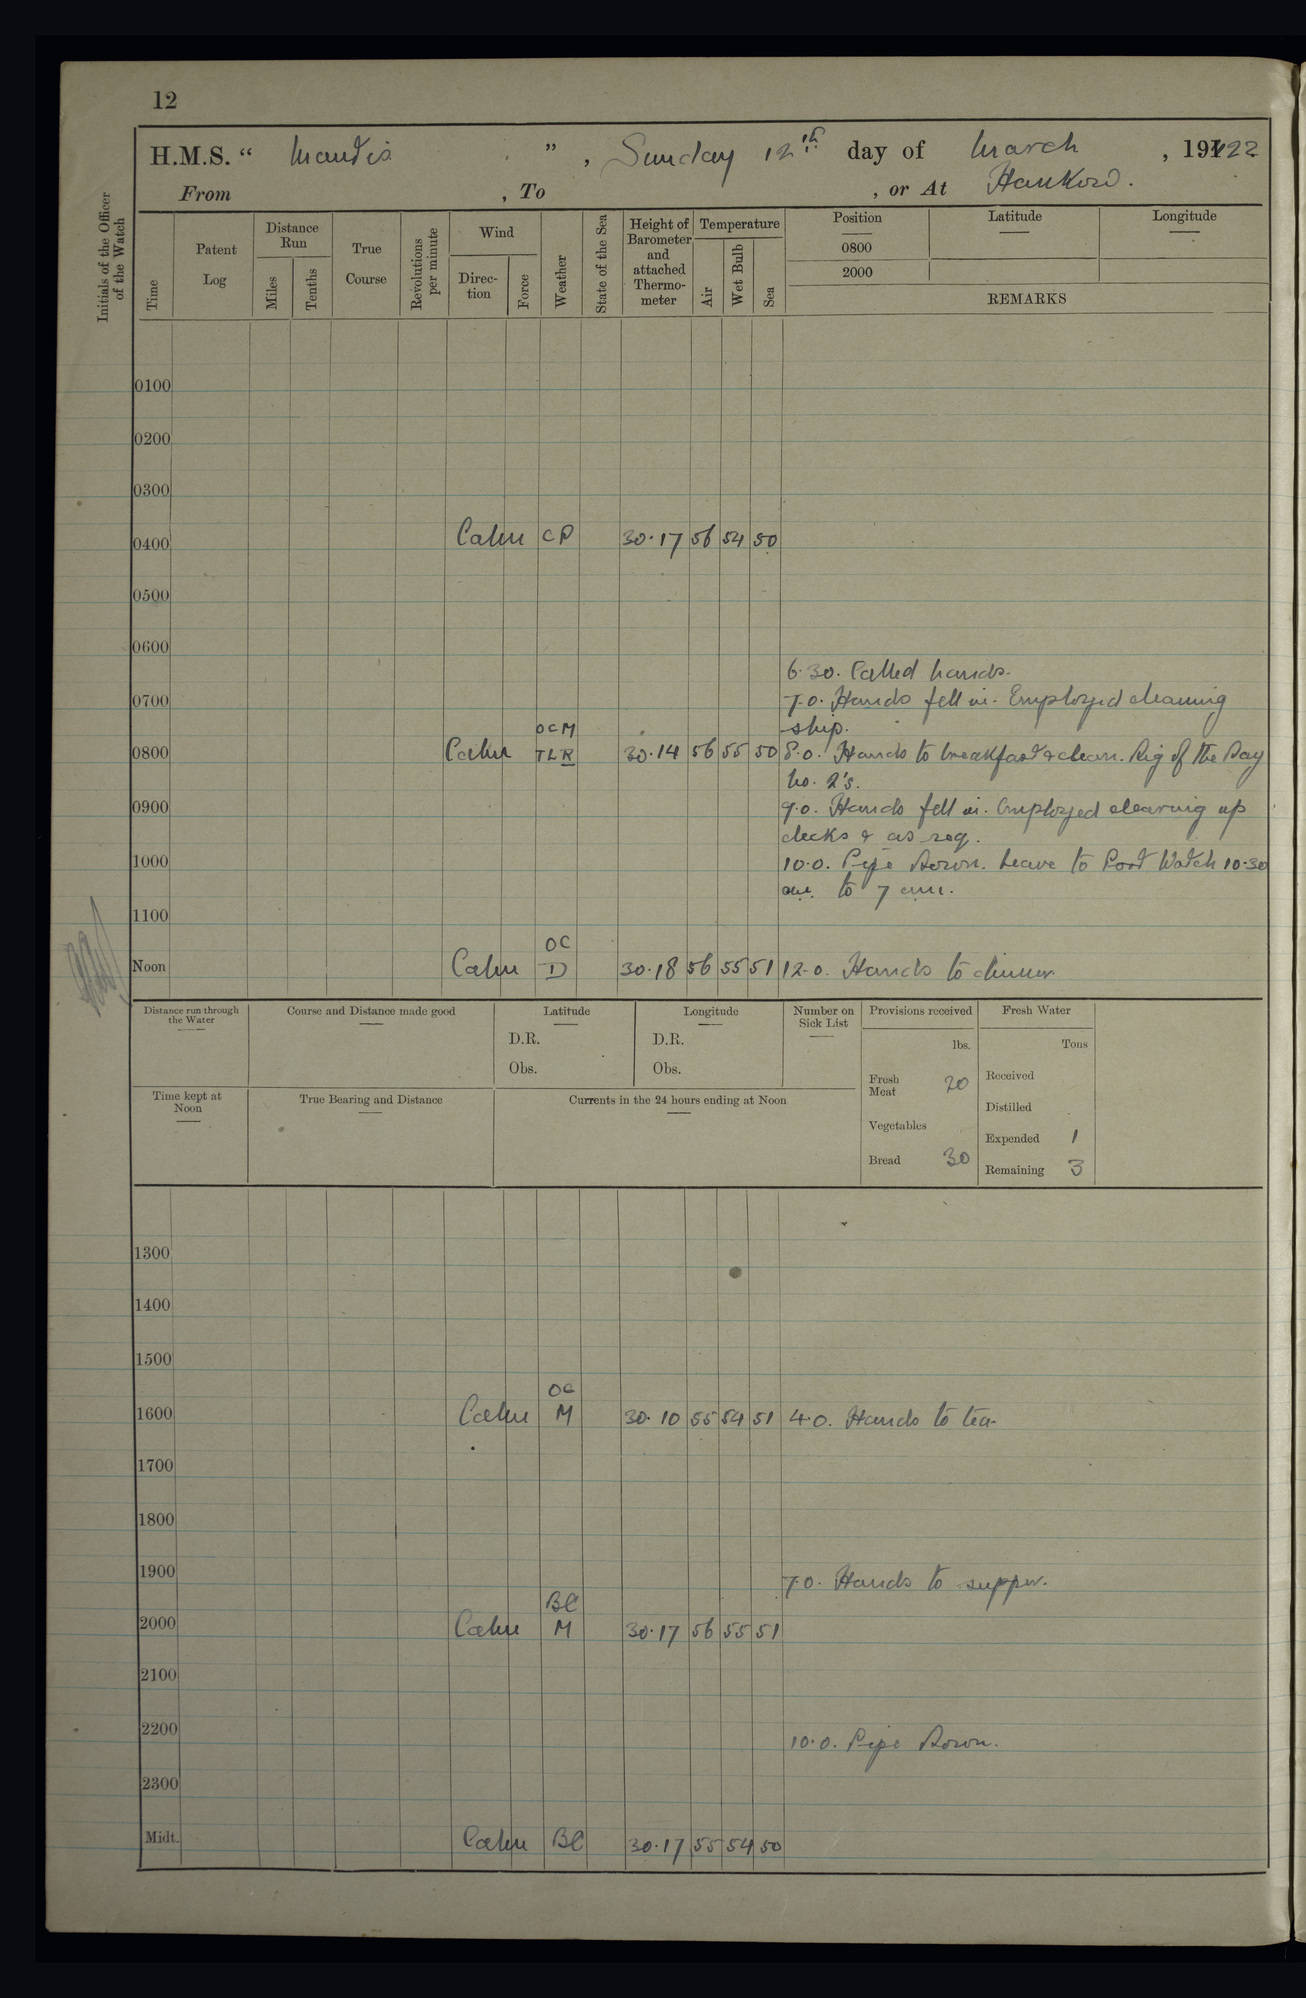 12
H.M.S. “ Mantis ” , Sunday 12th day of March , 1922
From , To , or At Hankow.
Initials of the Officer of the Watch
Time
Patent Log
Distance Run
Miles
Tenths
True Course
Revolutions per minute
Wind
Direc-tion
Force
Weather
State of the Sea
Height of Barometer and attached Thermo-meter
Temperature
Air
Wet Bulb
Sea
Position
0800
2000
Latitude
Longitude
REMARKS
0100
0200
0300
0400 Calm CP 30·17 56 54 50
0500
0600
6·30. Called hands.
0700 7·0. Hands fell in. Employed cleaning
ship.
OCM
0800 Calm TLR 30·14 56 55 50 8·0. Hands to breakfast & clean. Rig of the Day
No. 2's.
0900 9·0. Hands fell in. Employed clearing up
decks & as req.
1000 10·0. Pipe Down. Leave to Port Watch 10·30
am. to 7 am.
1100
OC
Noon Calm D 30·18 56 55 51 12·0. Hands to dinner
Distance run through the Water
Course and Distance made good
Latitude
D.R.
Obs.
Longitude
D.R.
Obs.
Number on Sick List
Provisions received
lbs.
Fresh Meat 20
Vegetables
Bread 30
Fresh Water
Tons
Received
Distilled
Expended 1
Remaining 3
Time kept at Noon
True Bearing and Distance
Currents in the 24 hours ending at Noon
1300
1400
1500
OC
1600 Calm M 30·10 55 54 51 4·0. Hands to tea.
1700
1800
1900 7·0. Hands to supper.
BC
2000 Calm M 30·17 56 55 51
2100
2200 10·0. Pipe Down.
2300
Midt. Calm BC 30·17 55 54 50